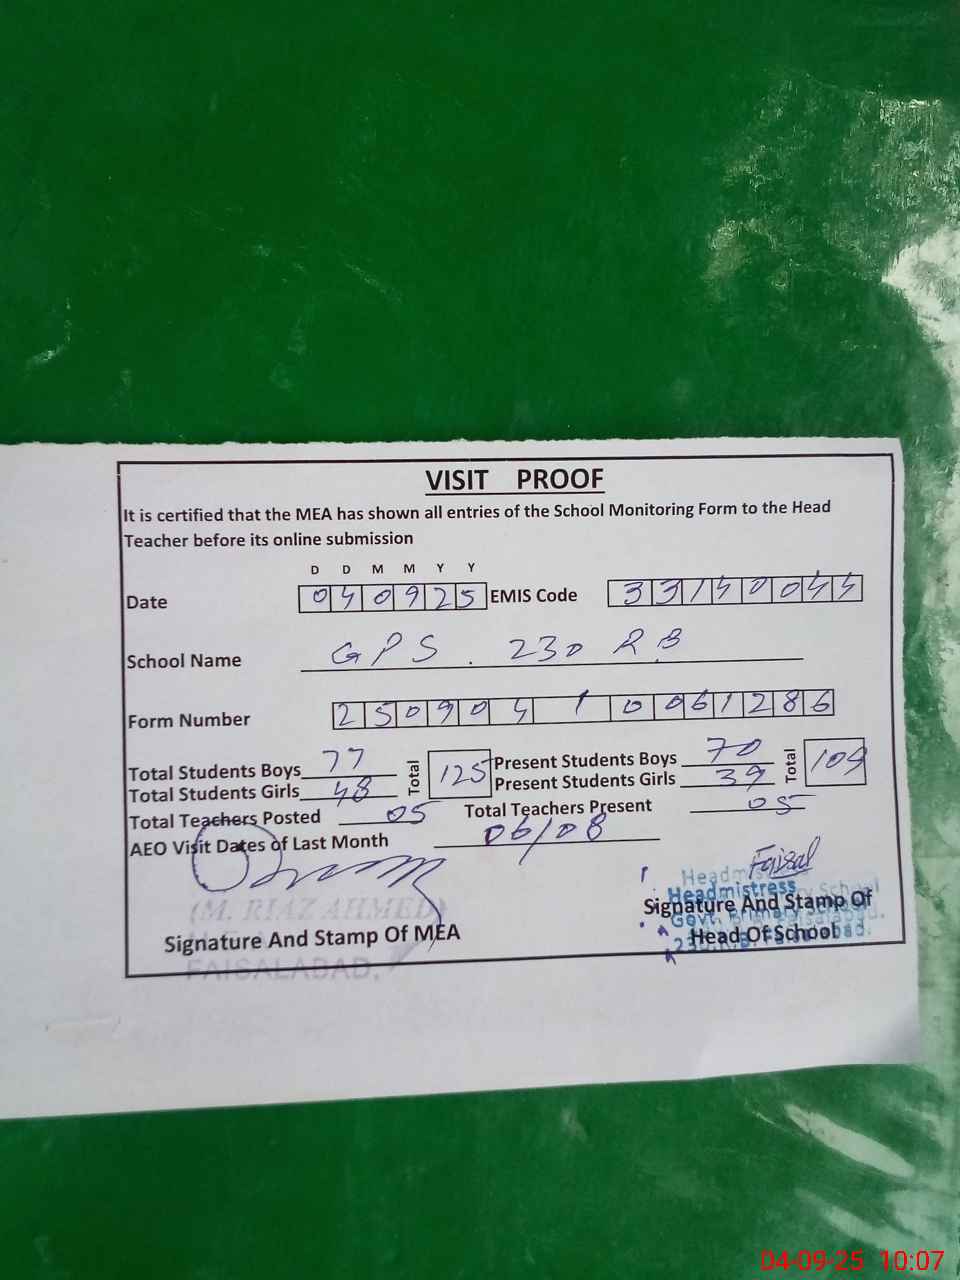 VISIT PROOF
It is certified that the MEA has shown all entries of the School Monitoring Form to the Head
Teacher before its online submission
D D M M Y Y
Date 040925 EMIS Code 33140044
School Name GPS. 230 R.B
Form Number 250904 1 0061286
Total Students Boys 77 Total 125 Present Students Boys 70 Total 109
Total Students Girls 48 Present Students Girls 39
Total Teachers Posted 05 Total Teachers Present 05
AEO Visit Dates of Last Month 06/08
Faisal
Headmistress
(M. RIAZ AHMED)
Signature And Stamp Of MEA
Signature And Stamp Of
Govt. Primary School
Head Of School
230.R.B. Faisalabad.
FAISALABAD.
04-09-25 10:07